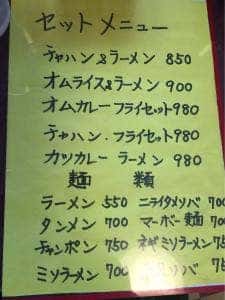 セットメニュー
チャハン&ラーメン 850
オムライス&ラーメン 900
オムカレーフライセット980
チャハン.フライセット980
カツカレー ラーメン 980
麺 類
ラーメン 550 ニライタメソバ 700
タンメン 700 マーボー麺 700
チャンポン 750 ネギミソラーメン
ミソラーメン 700